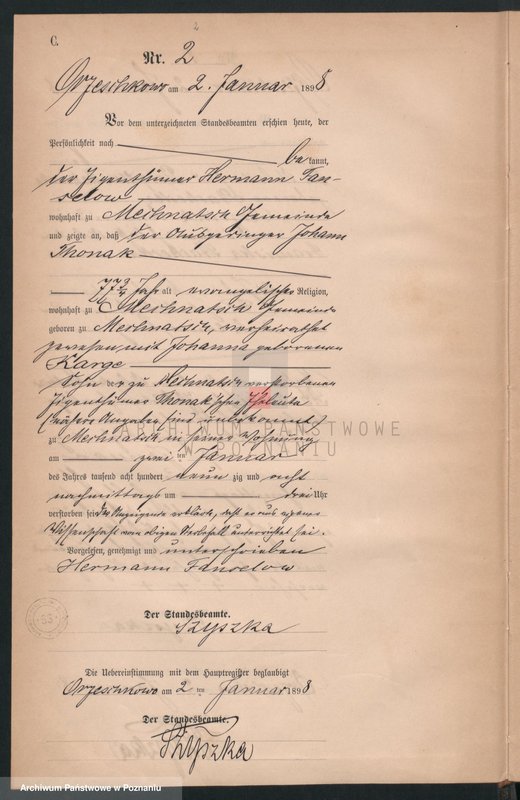 2
C.
Nr. 2
Orzeschkowo am 2. Januar 1898
Vor dem unterzeichneten Standesbeamten erschien heute, der
Persönlichkeit nach bekannt,
der Eigenthümer Hermann Fan-
selow
wohnhaft zu Merhnatsch Gemeinde
und zeigte an, daß der Ausgedinger Johann
Thonak
77 3/4 Jahr alt evangelischer Religion,
wohnhaft zu Merhnatsch Gemeinde
geboren zu Merhnatsch, verheirathet
gewesen mit Johanna geborenen
Karge
Sohn der zu Merhnatsch verstorbenen
Eigenthümer Thonak'schen Eheleute
(nähere Angaben sind unbekannt)
zu Merhnatsch in seiner Wohnung
am zwei ten Januar
des Jahres tausend acht hundert neun zig und acht
nachmittags um drei Uhr
verstorben sei. Der Anzeigende erklärte, daß er aus eigener
Wissenschaft von obigem Sterbefall unterrichtet sei.
Vorgelesen, genehmigt und unterschrieben
Hermann Fanselow
Der Standesbeamte.
Szyszka
Die Uebereinstimmung mit dem Hauptregister beglaubigt
Orzeschkowo am 2 ten Januar 1898
Der Standesbeamte.
Szyszka
ARCHIWUM PAŃSTWOWE
W POZNANIU
Archiwum Państwowe w Poznaniu